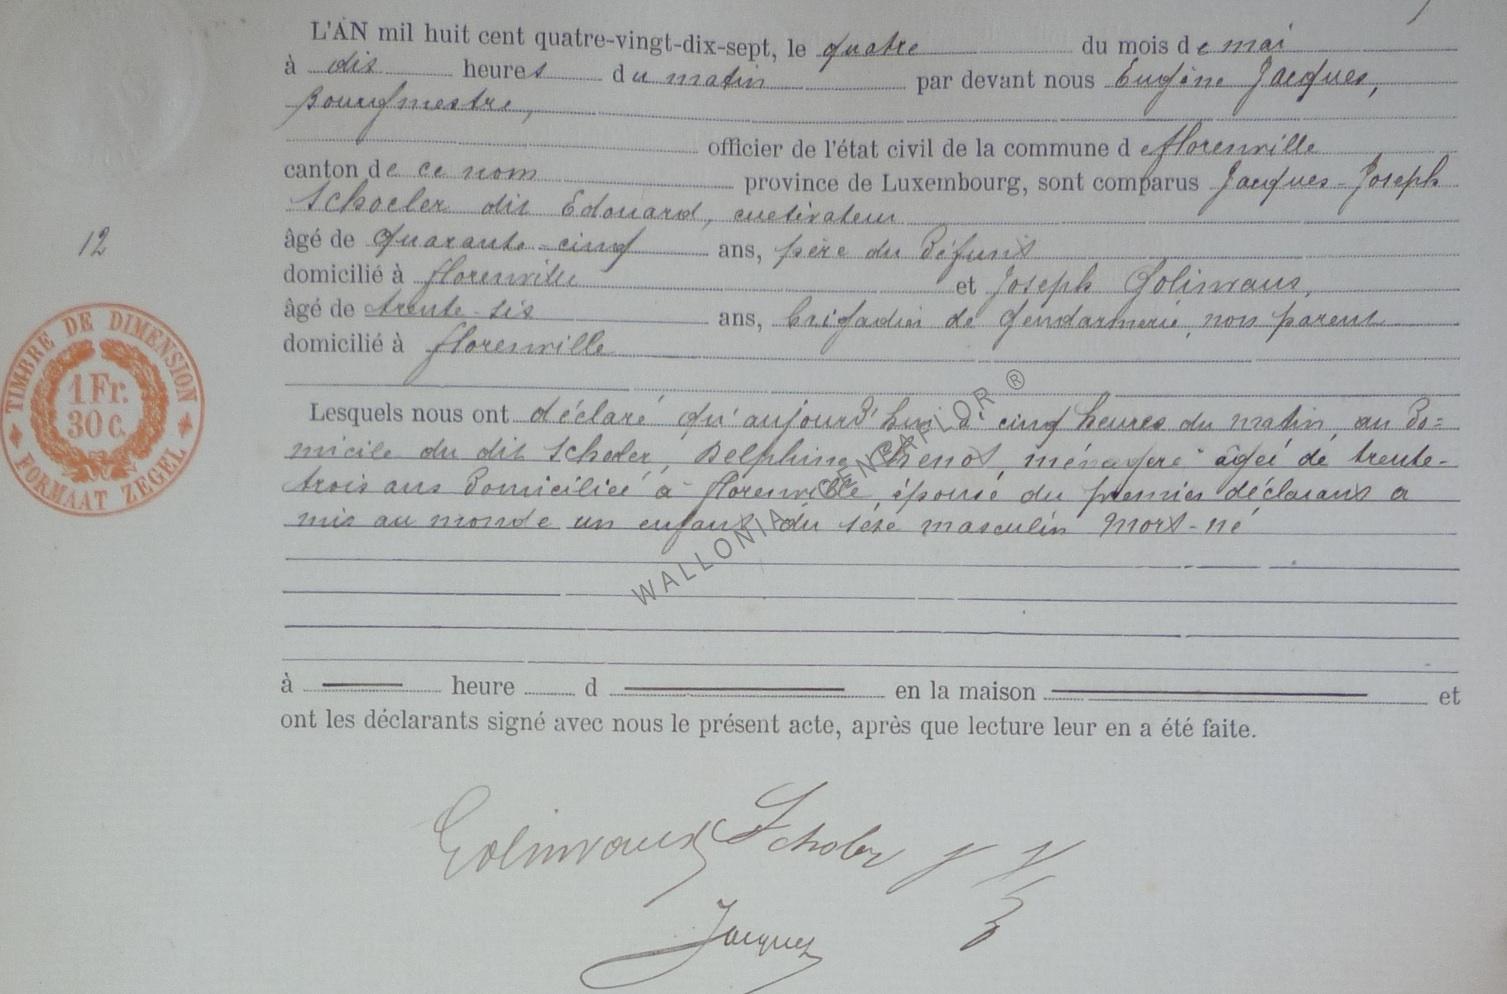 L'AN mil huit cent quatre-vingt-dix-sept, le quatre du mois de mai
à dix heures du matin par devant nous Eugène Jacques,
Bourgmestre,
officier de l'état civil de la commune de Florenville
canton de ce nom province de Luxembourg, sont comparus Jacques-Joseph
Schoeler dit Edouard, cultivateur
âgé de quarante-cinq ans, père du défunt
domicilié à Florenville et Joseph Golinvaux,
âgé de trente-six ans, brigadier de gendarmerie, non parent
domicilié à Florenville
Lesquels nous ont déclaré qu'aujourd'hui à cinq heures du matin, au do=
micile du dit Schoeler, Delphine Chenot, ménagère âgée de trente-
trois ans domiciliée à Florenville, épouse du premier déclarant a
mis au monde un enfant du sexe masculin mort-né
à heure d en la maison et
ont les déclarants signé avec nous le présent acte, après que lecture leur en a été faite.
Golinvaux Scholer J J
Jacques
12
TIMBRE DE DIMENSION
1 Fr.
30 c.
FORMAAT ZEGEL
WALLONIA GENCAFLOR ®